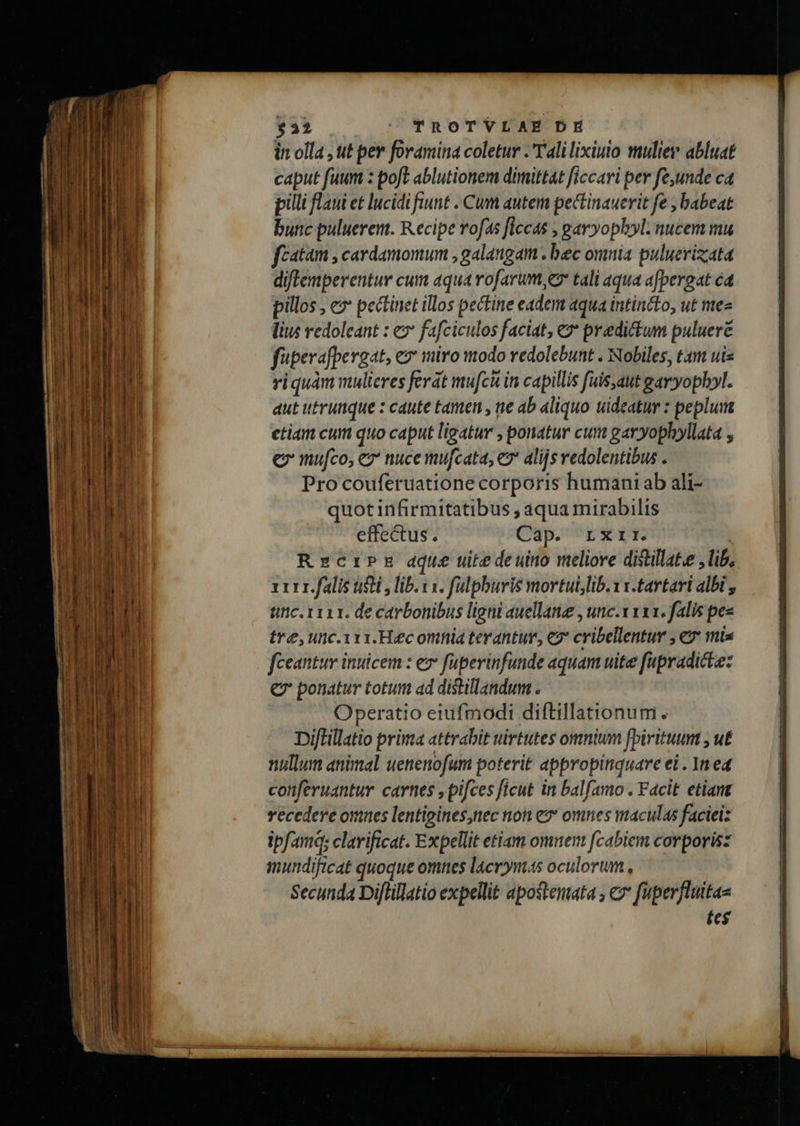 532 TROTVLAE DE
in olla, ut per foramina coletur. Tali lixiuio mulier abluat
caput ſuum: poſt ablutionem dimittat ſiccari per ſe, unde ca
pilli flaui et lucidi fiunt. Cum autem pectinauerit ſe, habeat
hunc puluerem. Recipe roſas ſiccas, garyophyl. nucem mu
ſcatam, cardamomum, galangam. hæc omnia puluerizata
diſtemperentur cum aqua roſarum, & tali aqua aſpergat ca
pillos, & pectinet illos pectine eadem aqua intincto, ut me=
lius redoleant: & faſciculos faciat, & prædictum puluerē
ſuperaſpergat, & miro modo redolebunt. Nobiles, tam ui=
ri quàm mulieres ferāt muſcū in capillis ſuis, aut garyophyl.
aut utrunque: caute tamen, ne ab aliquo uideatur: peplum
etiam cum quo caput ligatur, ponatur cum garyophyllata,
& muſco, & nuce muſcata, & alijs redolentibus.
Pro couſeruatione corporis humani ab ali-
quot infirmitatibus, aqua mirabilis
effectus. Cap. LXII.
RECIPE aquæ uitæ de uino meliore diſtillatæ, lib.
IIII. ſalis uſti, lib. II. ſulphuris mortui, lib. II. tartari albi,
unc. IIII. de carbonibus ligni auellanæ, unc. IIII. ſalis pe=
træ, unc. III. Hæc omnia terantur, & cribellentur, & mi=
ſceantur inuicem: & ſuperinfunde aquam uitæ ſupradictæ:
& ponatur totum ad diſtillandum.
Operatio eiuſmodi diſtillationum.
Diſtillatio prima attrahit uirtutes omnium ſpirituum, ut
nullum animal uenenoſum poterit appropinquare ei. In ea
conſeruantur carnes, piſces ſicut in balſamo. Facit etiam
recedere omnes lentigines, nec non & omnes maculas faciei:
ipſamq; clarificat. Expellit etiam omnem ſcabiem corporis:
mundificat quoque omnes lacrymas oculorum,
Secunda Diſtillatio expellit apoſtemata, & ſuperfluita=
tes